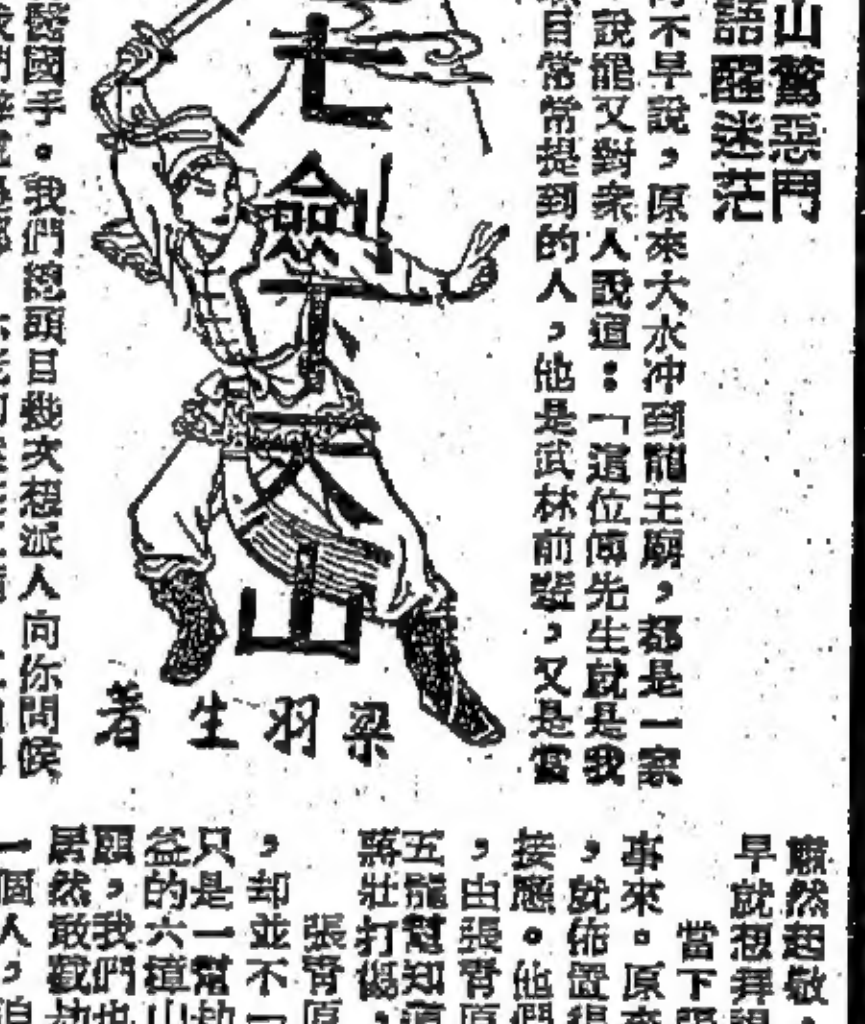 山驚惡鬥
語醒迷茫
不早說，原來大水冲到龍王廟，都是一家
說罷又對衆人說道：「這位傅先生就是我
目常常提到的人，他是武林前輩，又是當
七劍下天山
梁羽生著
醫國手。我們總頭目幾次想派人向你問候
肅然起敬，
早就想拜
當下
事來。原來
，就佈置
接應。他們
，由張青原
五龍幫知道
蔣壯打傷，
張青原
，却並不一
只是一幫
益的六樟山
頭，我們也
居然敢截劫
一個人，